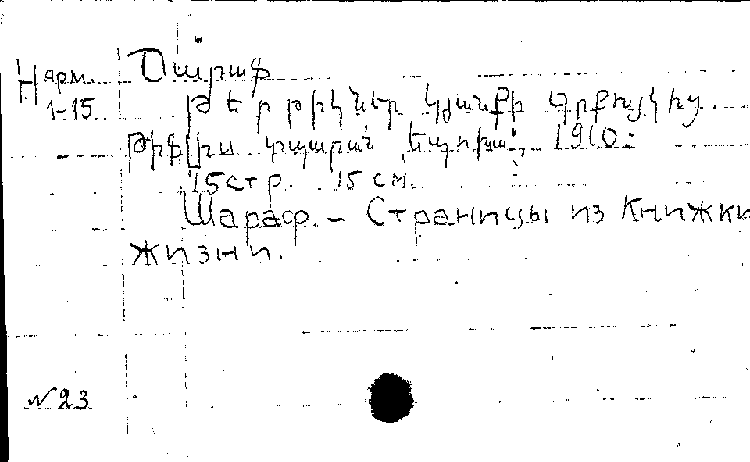 Н арм.
1-15
Շարաֆ
Թերթիկներ կյանքի գրքոյկից.
Թիֆլիս տպարան Էպոխա, 1910:
15 стр. 15 см.
Шараф. – Страницы из книжки
жизни.
№ 23